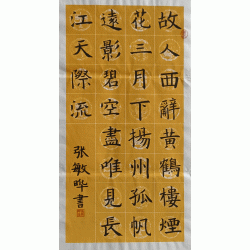 故人西辭黃鶴樓煙
花三月下楊州孤帆
遠影碧空盡唯見長
江天際流
張敏晔書